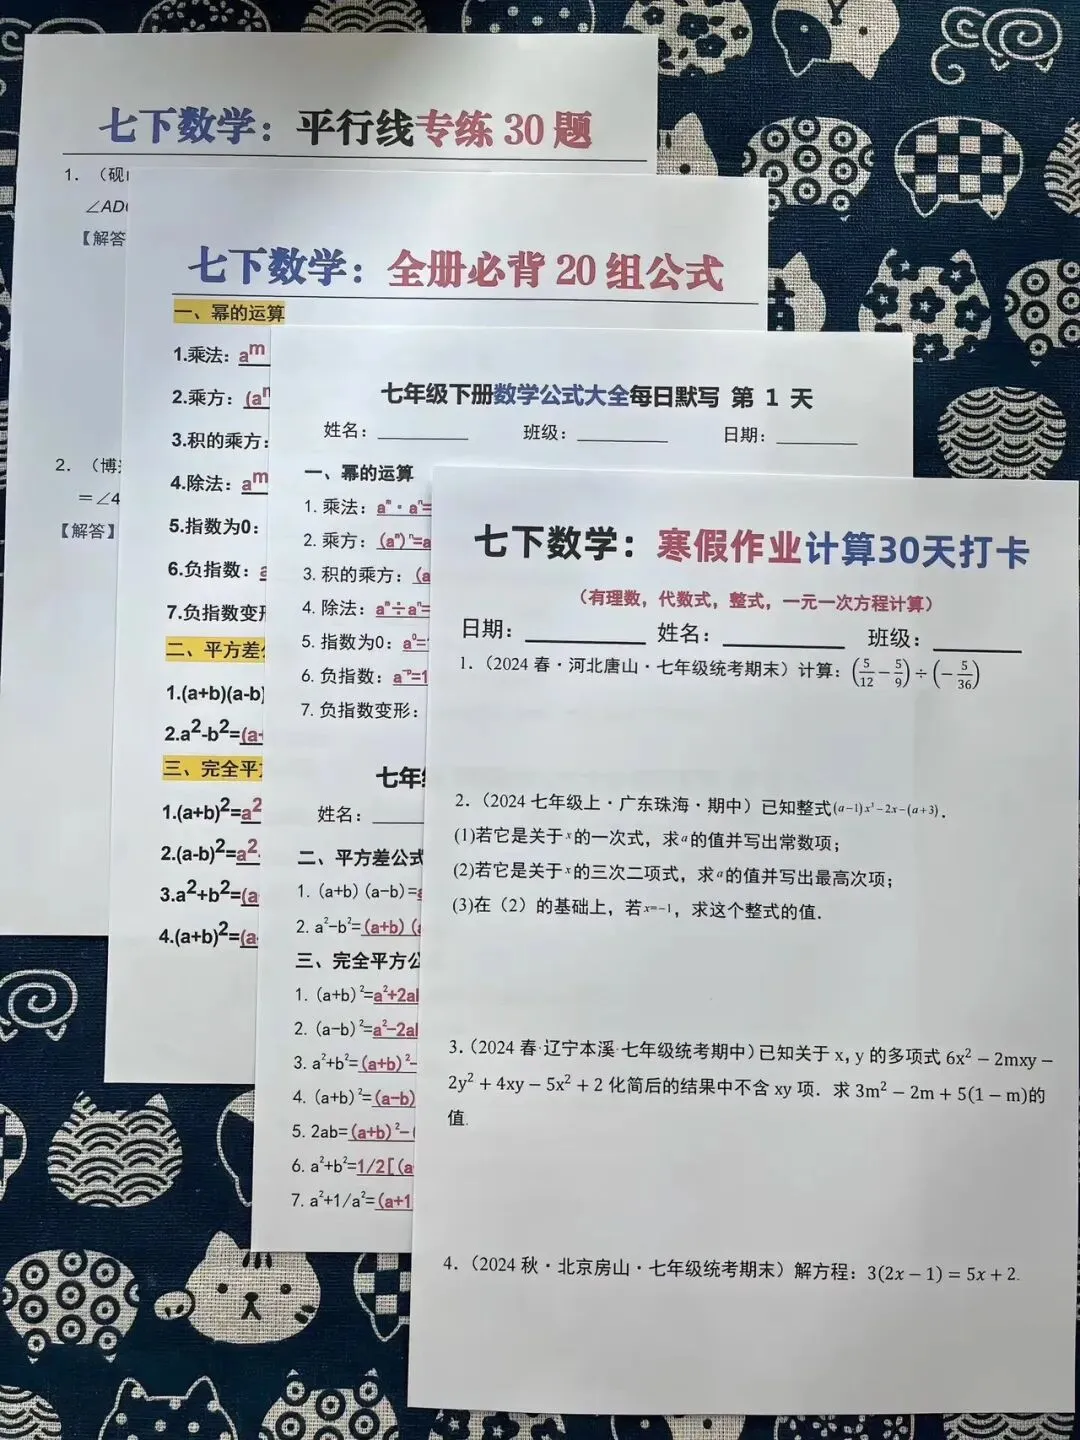 七下数学：平行线专练30题
1.（砚
∠AD
【解答
2.（博
＝∠4
【解答】
七下数学：全册必背20组公式
一、幂的运算
1.乘法：a^m
2.乘方：(a
3.积的乘方：
4.除法：a^m
5.指数为0：
6.负指数：
7.负指数变形
二、平方差
1.(a+b)(a-b)
2.a²-b²=(a
三、完全平
1.(a+b)²=a²
2.(a-b)²=a²
3.a²+b²=(a
4.(a+b)²=(a
七年级下册数学公式大全每日默写 第 1 天
姓名：________ 班级：________ 日期：________
一、幂的运算
1. 乘法：a^m·a^n=
2. 乘方：(a^m)^n=a
3. 积的乘方：(a
4. 除法：a^m÷a^n=
5. 指数为0：a⁰=
6. 负指数：a^-p=1
7. 负指数变形：
七年
姓名：____
二、平方差公式
1. (a+b)(a-b)=
2. a²-b²=(a+b)(
三、完全平方公
1. (a+b)²=a²+2a
2. (a-b)²=a²-2a
3. a²+b²=(a+b)²-
4. (a+b)²=(a-b)
5. 2ab=(a+b)²-(
6. a²+b²=1/2[(a
7. a²+1/a²=(a+1
七下数学：寒假作业计算30天打卡
（有理数，代数式，整式，一元一次方程计算）
日期：________ 姓名：________ 班级：________
1.（2024春·河北唐山·七年级统考期末）计算：(5/12－5/9)÷(－5/36)
2.（2024七年级上·广东珠海·期中）已知整式(a-1)x³-2x-(a+3).
(1)若它是关于x的一次式，求a的值并写出常数项；
(2)若它是关于x的三次二项式，求a的值并写出最高次项；
(3)在（2）的基础上，若x=-1，求这个整式的值.
3.（2024春·辽宁本溪·七年级统考期中）已知关于x, y的多项式6x²－2mxy－
2y²＋4xy－5x²＋2化简后的结果中不含xy项．求3m²－2m＋5(1－m)的
值.
4.（2024秋·北京房山·七年级统考期末）解方程：3(2x－1)＝5x＋2.